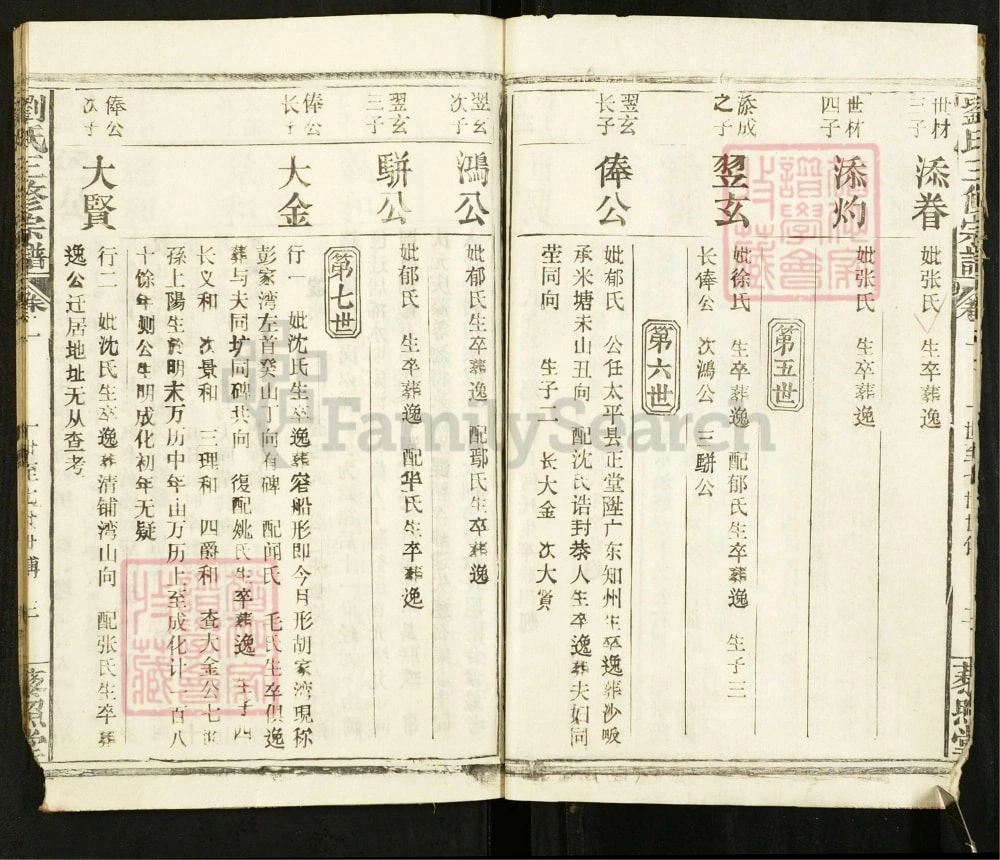 世材
三子
添眷
妣张氏 生卒葬逸
世材
四子
添灼
妣张氏 生卒葬逸
第五世
添成
之子
翌玄
妣徐氏 生卒葬逸 配郁氏生卒葬逸 生子三
长俸公 次鴻公 三騈公
第六世
翌玄
长子
俸公
妣郁氏 公任太平县正堂陞广东知州生卒逸葬沙㘬
承米塘未山丑向 配沈氏诰封恭人生卒逸葬夫妇同
茔同向 生子二 长大金 次大贤
翌玄
次子
鴻公
妣郁氏生卒葬逸 配鄢氏生卒葬逸
翌玄
三子
騈公
妣郁氏 生卒葬逸 配华氏生卒葬逸
第七世
俸公
长子
大金
行一 妣沈氏生卒逸葬宕船形即今月形胡家湾現称
彭家湾左首癸山丁向有碑 配闻氏 毛氏生卒俱逸
葬与夫同坟同碑共向 復配姚氏生卒葬逸 生子四
长义和 次景和 三理和 四爵和 查大金公七世
孫上陽生於明末万历中年由万历上至成化计一百八
十馀年测公生明成化初年无疑
俸公
次子
大賢
行二 妣沈氏生卒逸葬清铺湾山向 配张氏生卒葬
逸公迁居地址无从查考
劉氏三修宗譜
藜照堂
FamilySearch